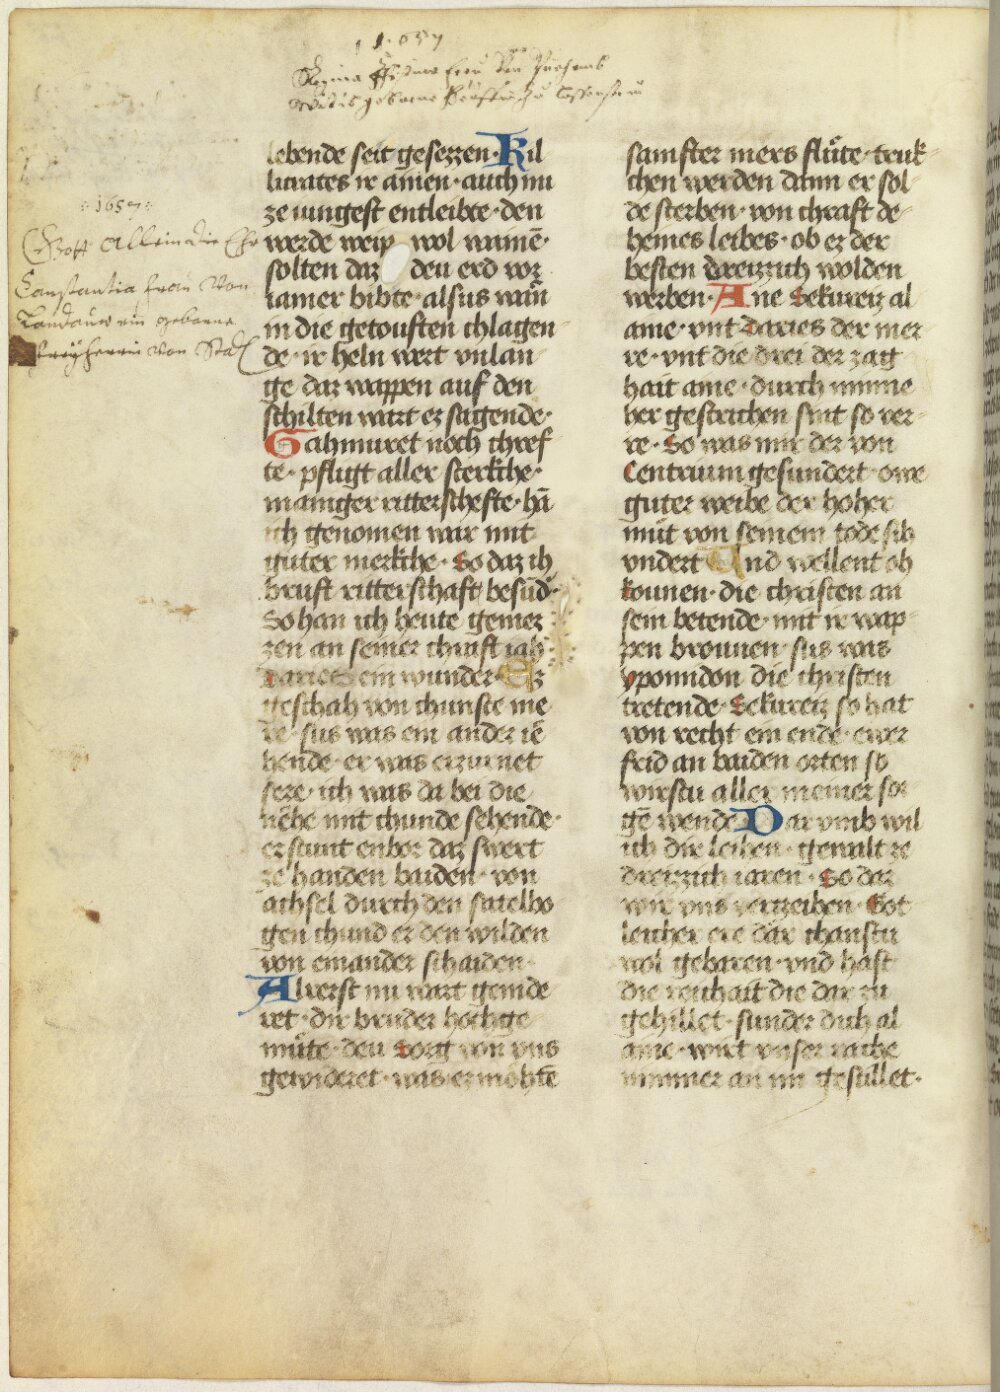 1657
Regina
: 1657 :
Gott Allein die Ehr
Constantia frau von
Landauw ein geborne
freyherrin von Stad
lebende seit gesezzen · Kil
licrates ir amen · auch nu
ze iungest entleibte · den
werde weip wol wainē ·
solten daz deu erd vor
iamer bibte · alsus wan
in die getouften chlagen
de · ir heln wert vnlan
ge daz wappen auf den
schilten wart er sagende ·
Gahmuret noch chref
te · pfligt aller sterkche ·
maniger ritterschefte · hā
ich genomen war mit
guter merkche · So daz ih
bruft ritterschaft besūd
So han ich heute gemez
zen an seiner chraft iah
Daries ein wunder · Ez
geschah von chunste me
re · sus was ein ander iē
hende · er was erzurnet
sere · ich was da bei die
nēhe mit chunde sehende ·
er stunt enbor daz swert
ze handen baiden · von
achsel durch den satelbo
gen chund er den wilden
von einander schaiden ·
Alrerst nu wart gemde
ret · dir bruder hochge
müte · deu Sorg von vns
gewideret · was er mohtē
samfter mers flůte · truk
chen werden dann er sol
de sterben · von chraft de
heines leibes · ob ez der
besten dreizzich wolden
werben · Ane Sekureiz al
aine · vnt Daries der mer
re · vnt die drei der zag
hait aine · durch nimme
her gestrichen sint so ver
re · So was mir der von
Centrium gesundert · owe
guter weibe der hoher
müt von seinem tode sih
vndert Und wellent oh
kounen · die christen an
sein betende · mit ir wap
pen brouuen · sus was
ypomidon die christen
tretende · Sekureiz so hat
von recht ein ende · ewer
frid an baiden orten so
wirstu aller meiner sor
gē wende · Dar vmb wil
ich dir leihen · gewalt ze
dreizzich iaren · So daz
wir vns verzeihen · Got
leicher ere dar chanstu
wol gebaren · vnd hast
die reichait die dar zu
gehillet · sunder dich al
aine · wirt vnser rache
nimmer an im gestillet ·